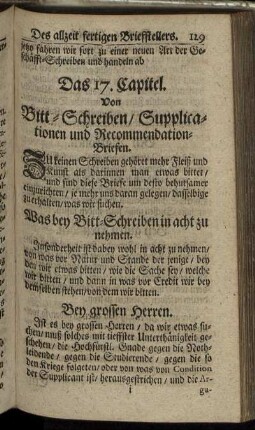 Des allzeit fertigen Briefstellers. 129
jetzo fahren wir fort zu einer neuen Art der Ge-
schäfft-Schreiben und handeln ab
Das 17. Capitel.
Von
Bitt-Schreiben/ Supplica-
tionen und Recommendation-
Briefen.
Mit keinen Schreiben gehöret mehr Fleiß und
Kunst als darinnen man etwas bittet/
und sind diese Briefe um desto behutsamer
einzurichten/ je mehr uns daran gelegen/ dasselbige
zu erhalten/ was wir suchen.
Was bey Bitt-Schreiben in acht zu
nehmen.
Insonderheit ist dabey wohl in acht zu nehmen/
von was vor Natur und Stande der jenige/ bey
dem wir etwas bitten/ wie die Sache sey/ welche
wir bitten/ und dann in was vor Credit wir bey
demselben stehen/ von dem wir bitten.
Bey grossen Herren.
Ist es bey grossen-Herren/ da wir etwas su-
chen/ muß solches mit tieffster Unterthänigkeit ge-
schehen/ die Hochfürstl. Gnade gegen die Noth-
leidende/ gegen die Studierende/ gegen die so
dem Kriege folgeten/ oder von was von Condition
der Supplicant ist/ herausgestrichen/ und die Ar-
i
gu-